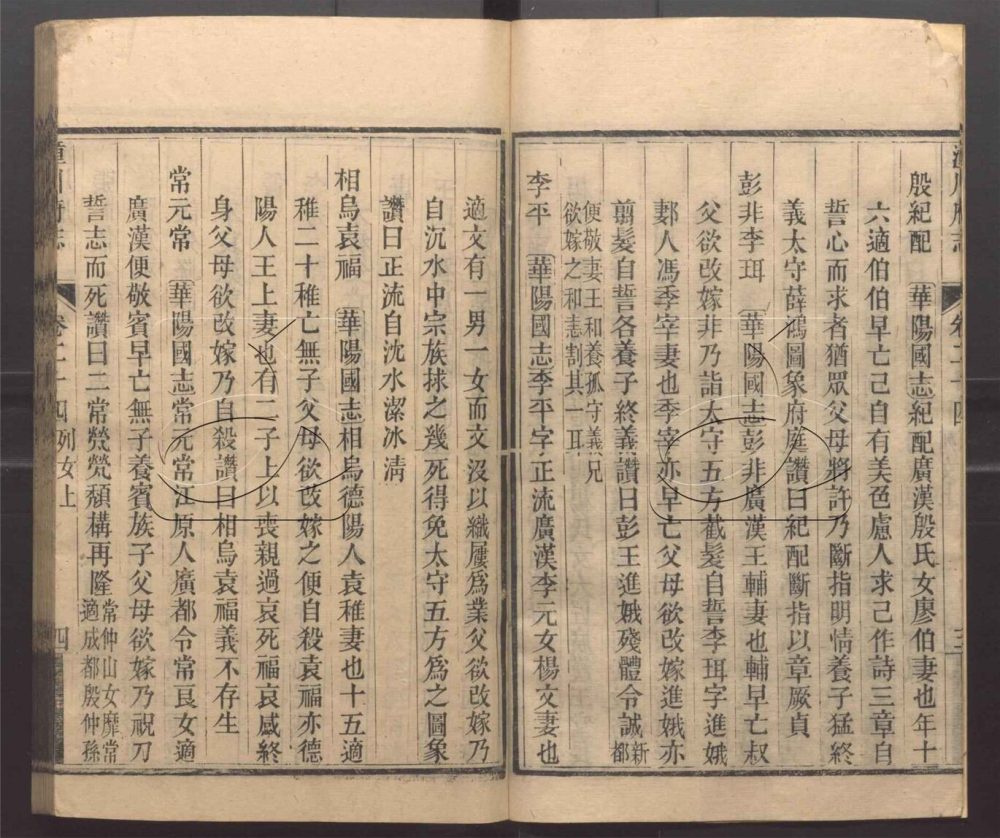 殷紀配　華陽國志紀配廣漢殷氏女廖伯妻也年十
六適伯伯早亡己自有美色慮人求己作詩三章自
誓心而求者猶眾父母將許乃斷指明情養子猛終
義太守薛鴻圖象府庭讚曰紀配斷指以章厥貞
彭非李珥　華陽國志彭非廣漢王輔妻也輔早亡叔
父欲改嫁非乃詣太守五方截髮自誓李珥字進娥
郪人馮季宰妻也季宰亦早亡父母欲改嫁進娥亦
翦髮自誓各養子終義讚曰彭王進娥殘體令誠新都
便敬妻王和養孤守義兄
欲嫁之和恚割其一耳
李平　華陽國志李平字正流廣漢李元女楊文妻也
適文有一男一女而文沒以織屨爲業父欲改嫁乃
自沉水中宗族捄之幾死得免太守五方爲之圖象
讚曰正流自沈水潔冰清
相烏袁福　華陽國志相烏德陽人袁稚妻也十五適
稚二十稚亡無子父母欲改嫁之便自殺袁福亦德
陽人王上妻也有二子上以喪親過哀死福哀感終
身父母欲改嫁乃自殺讚曰相烏袁福義不存生
常元常　華陽國志常元常江原人廣都令常良女適
廣漢便敬賓早亡無子養賓族子父母欲嫁乃祝刀
誓志而死讚曰二常煢煢頹構再隆常仲山女靡常
適成都殷仲孫
川府志
卷二十四
三
川府志
卷二十四列女上
四